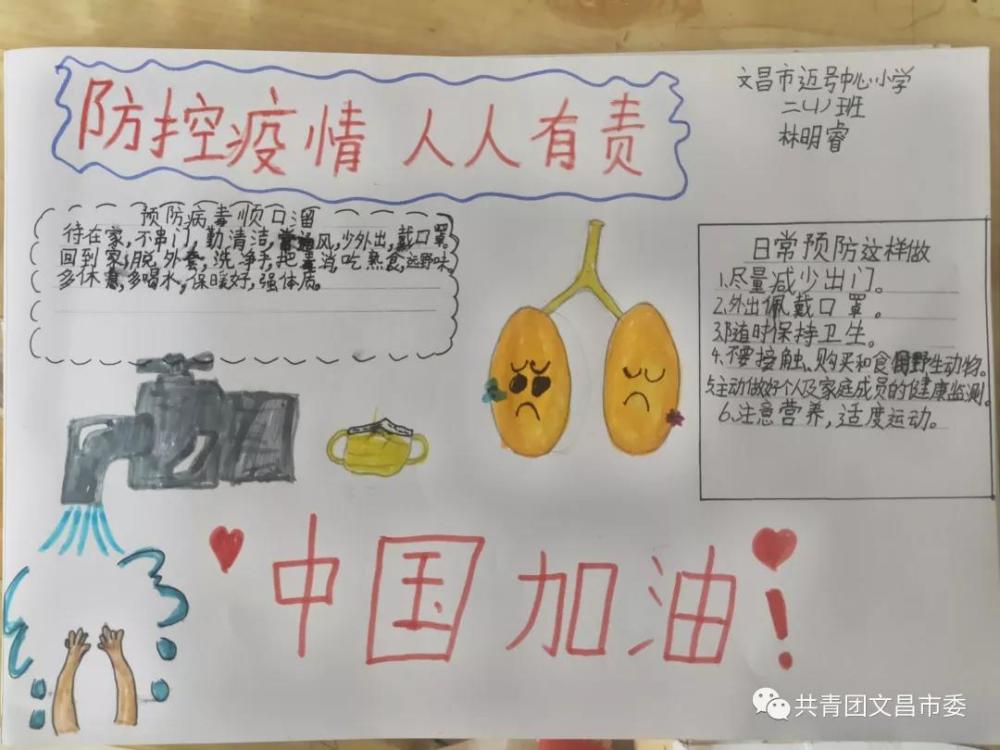 防控疫情 人人有责
文昌市迈号中心小学
二(4)班
林明睿
预防病毒顺口溜
待在家,不串门,勤清洁,常通风,少外出,戴口罩。
回到家,脱外套,洗净手,把毒消,吃熟食,远野味。
多休息,多喝水,保暖好,强体质。
日常预防这样做
1.尽量减少出门。
2.外出佩戴口罩。
3.随时保持卫生。
4.不要接触、购买和食用野生动物。
5.主动做好个人及家庭成员的健康监测。
6.注意营养,适度运动。
中国加油!
共青团文昌市委